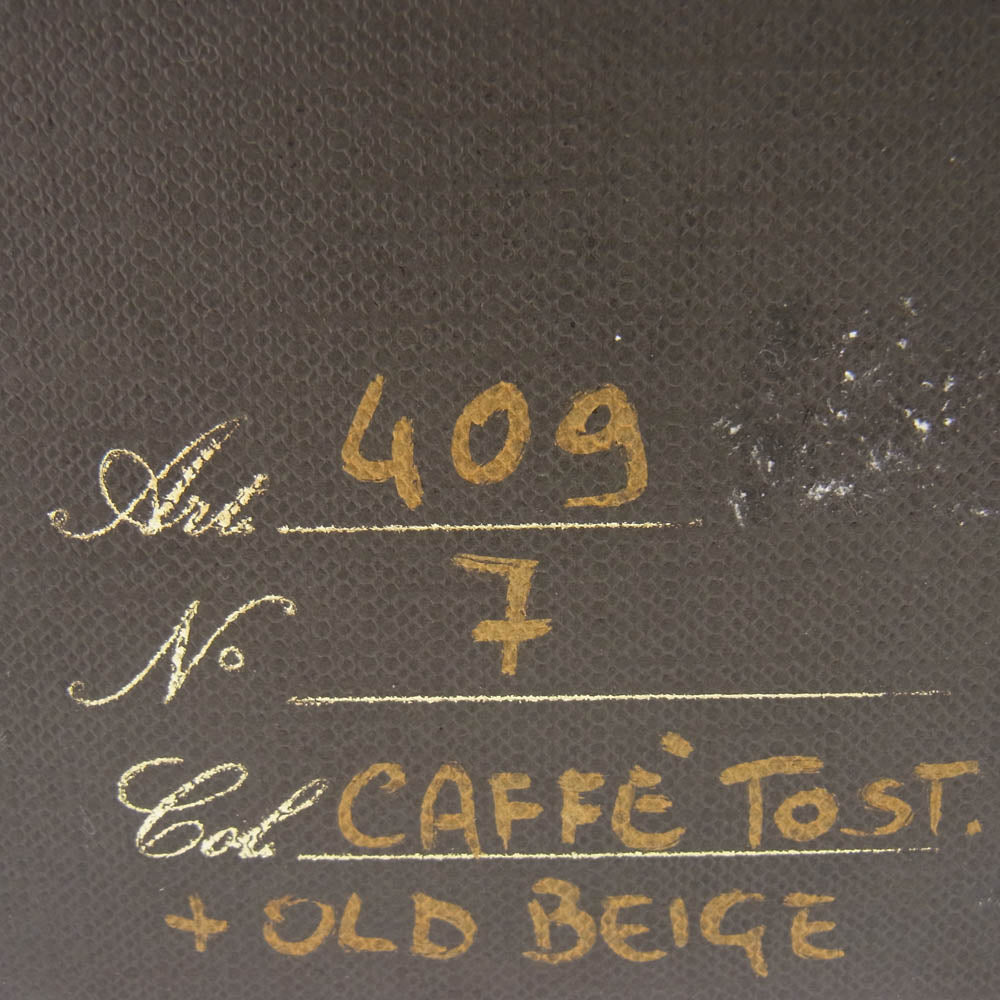 Art. 409
N° 7
Col. CAFFÈ TOST.
+ OLD BEIGE